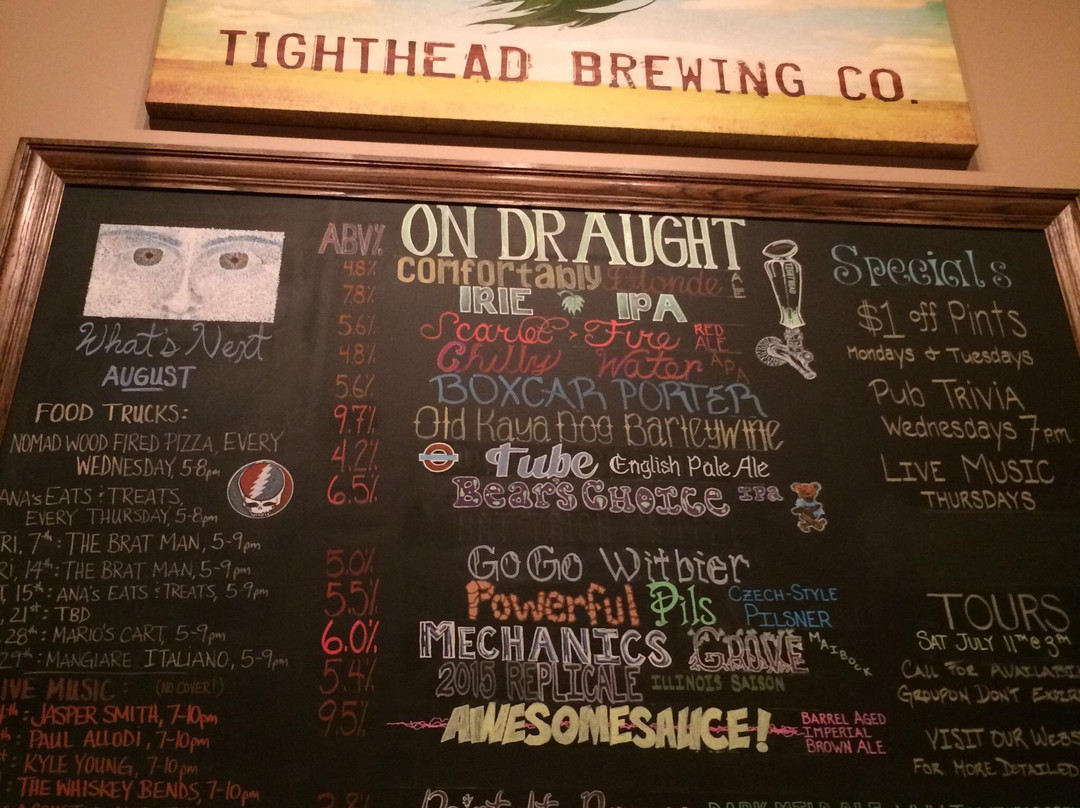 TIGHTHEAD BREWING CO.
What's Next
AUGUST
FOOD TRUCKS:
NOMAD WOOD FIRED PIZZA, EVERY
WEDNESDAY, 5-8pm
ANA'S EATS & TREATS,
EVERY THURSDAY, 5-8pm
RI, 7th: THE BRAT MAN, 5-9pm
RI, 14th: THE BRAT MAN, 5-9pm
, 15th: ANA'S EATS & TREATS, 5-9pm
, 21st: TBD
28th: MARIO'S CART, 5-9pm
29th: MANGIARE ITALIANO, 5-9pm
IVE MUSIC: (NO COVER!)
th: JASPER SMITH, 7-10pm
th: PAUL ALLODI, 7-10pm
: KYLE YOUNG, 7-10pm
: THE WHISKEY BENDS, 7-10pm
ABV% ON DRAUGHT
4.8% Comfortably Blonde ALE
7.8% IRIE IPA
5.6% Scarlet > Fire RED ALE
4.8% Chilly Water APA
5.6% BOXCAR PORTER
9.7% Old Kaya Dog Barleywine
4.2% Tube English Pale Ale
6.5% Bear's Choice IPA
5.0% GoGo Witbier
5.5% Powerful Pils CZECH-STYLE PILSNER
6.0% MECHANICS GROVE MAIBOCK
5.4% 2015 REPLICALE ILLINOIS SAISON
9.5% AWESOMESAUCE! BARREL AGED IMPERIAL BROWN ALE
Specials
$1 off Pints
Mondays & Tuesdays
Pub Trivia
Wednesdays 7pm
LIVE MUSIC
THURSDAYS
TOURS
SAT JULY 11th @ 3pm
CALL FOR AVAILABI
GROUPON DON'T EXPIR
VISIT OUR WEBS
FOR MORE DETAILED